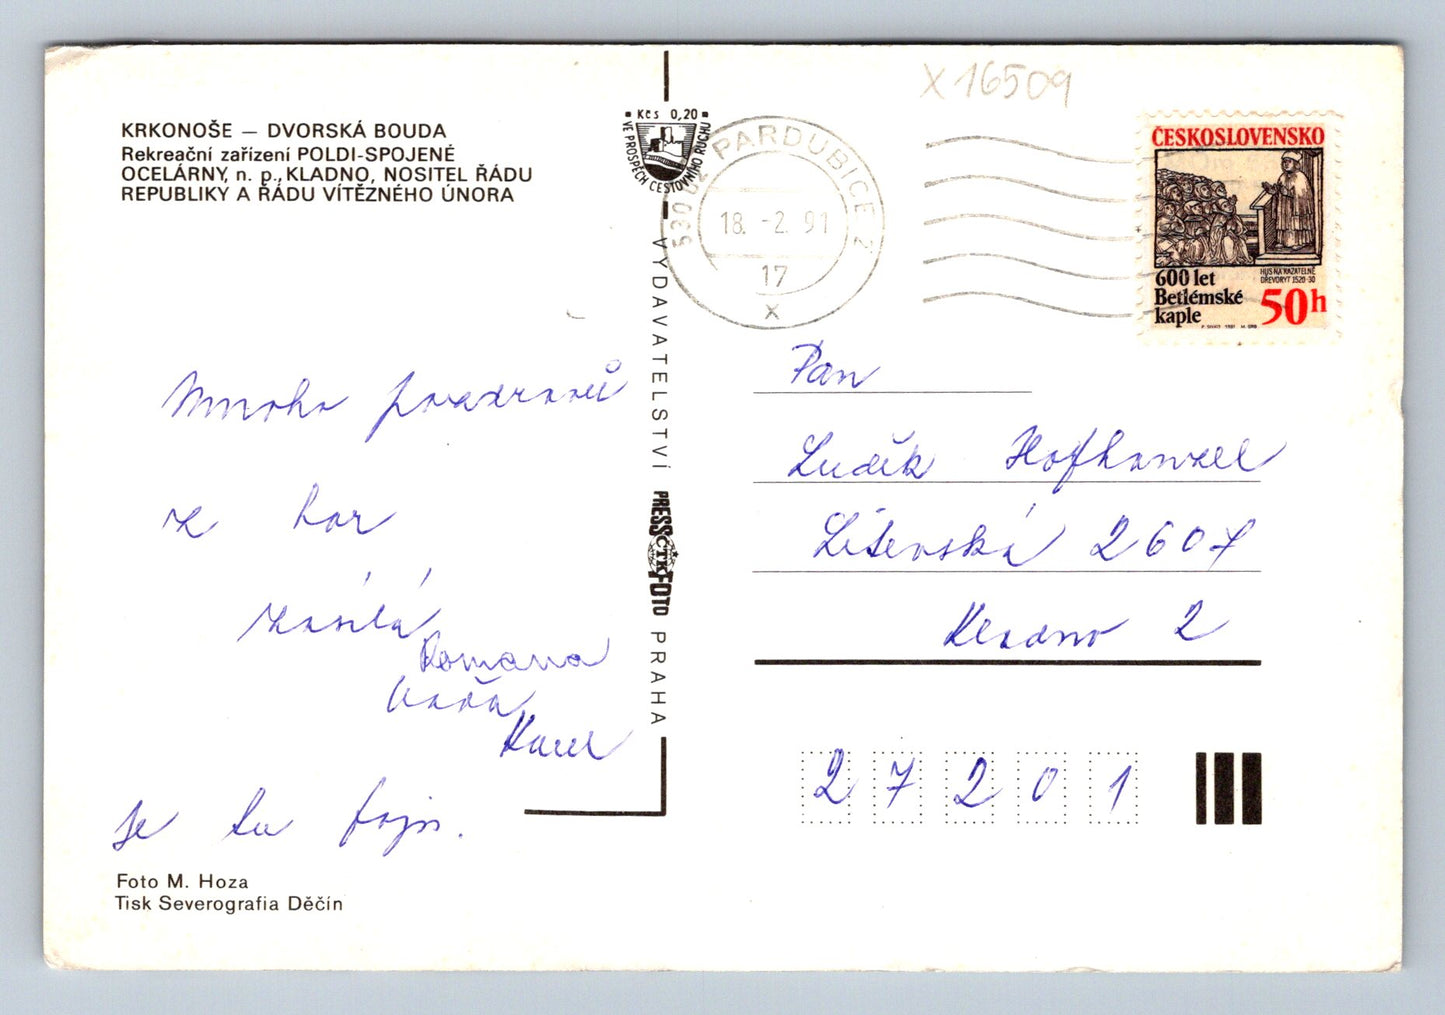 KRKONOŠE – DVORSKÁ BOUDA
Rekreační zařízení POLDI-SPOJENÉ
OCELÁRNY, n. p., KLADNO, NOSITEL ŘÁDU
REPUBLIKY A ŘÁDU VÍTĚZNÉHO ÚNORA
Mnoho pozdravů
z hor
zasílá
Romana
Karel
je tu fajn.
Foto M. Hoza
Tisk Severografia Děčín
Kčs 0,20
VE PROSPĚCH CESTOVNÍHO RUCHU
VYDAVATELSTVÍ PRESSFOTO PRAHA
ČTK
530 02 PARDUBICE 2
18. -2. 91
17
x
X 16509
ČESKOSLOVENSKO
HUS NA KAZATELNĚ
DŘEVORYT 1520-30
600 let
Betlémské
kaple
50h
Pan
Luděk
Litevská 2607
Kladno 2
27201